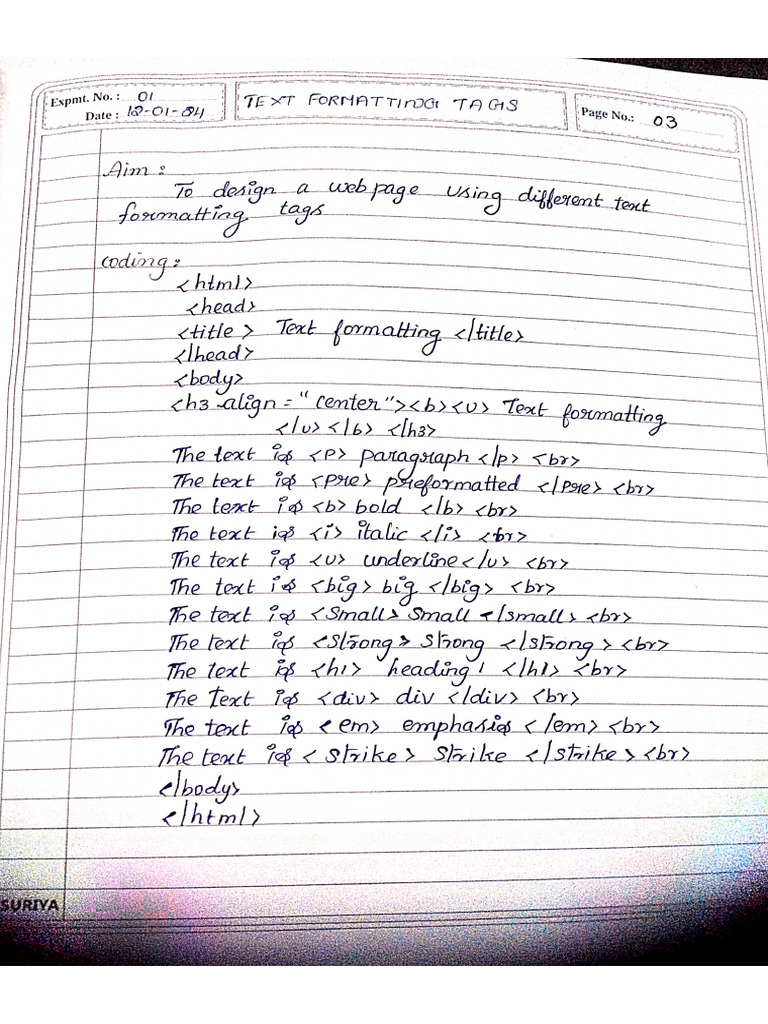 Expmt. No. : 01
Date : 12-01-24
TEXT FORMATTING TAGS
Page No.: 03
Aim :
To design a web page using different text
formatting tags
coding :
<html>
<head>
<title> Text formatting </title>
</head>
<body>
<h3 align = "center"><b><u> Text formatting
</u></b> </h3>
The text is <p> paragraph </p> <br>
The text is <pre> preformatted </pre> <br>
The text is <b> bold </b> <br>
The text is <i> italic </i> <br>
The text is <u> underline </u> <br>
The text is <big> big </big> <br>
The text is <small> small </small> <br>
The text is <strong> strong </strong> <br>
The text is <h1> heading1 </h1> <br>
The text is <div> div </div> <br>
The text is <em> emphasis </em> <br>
The text is <strike> strike </strike> <br>
</body>
</html>
SURIYA